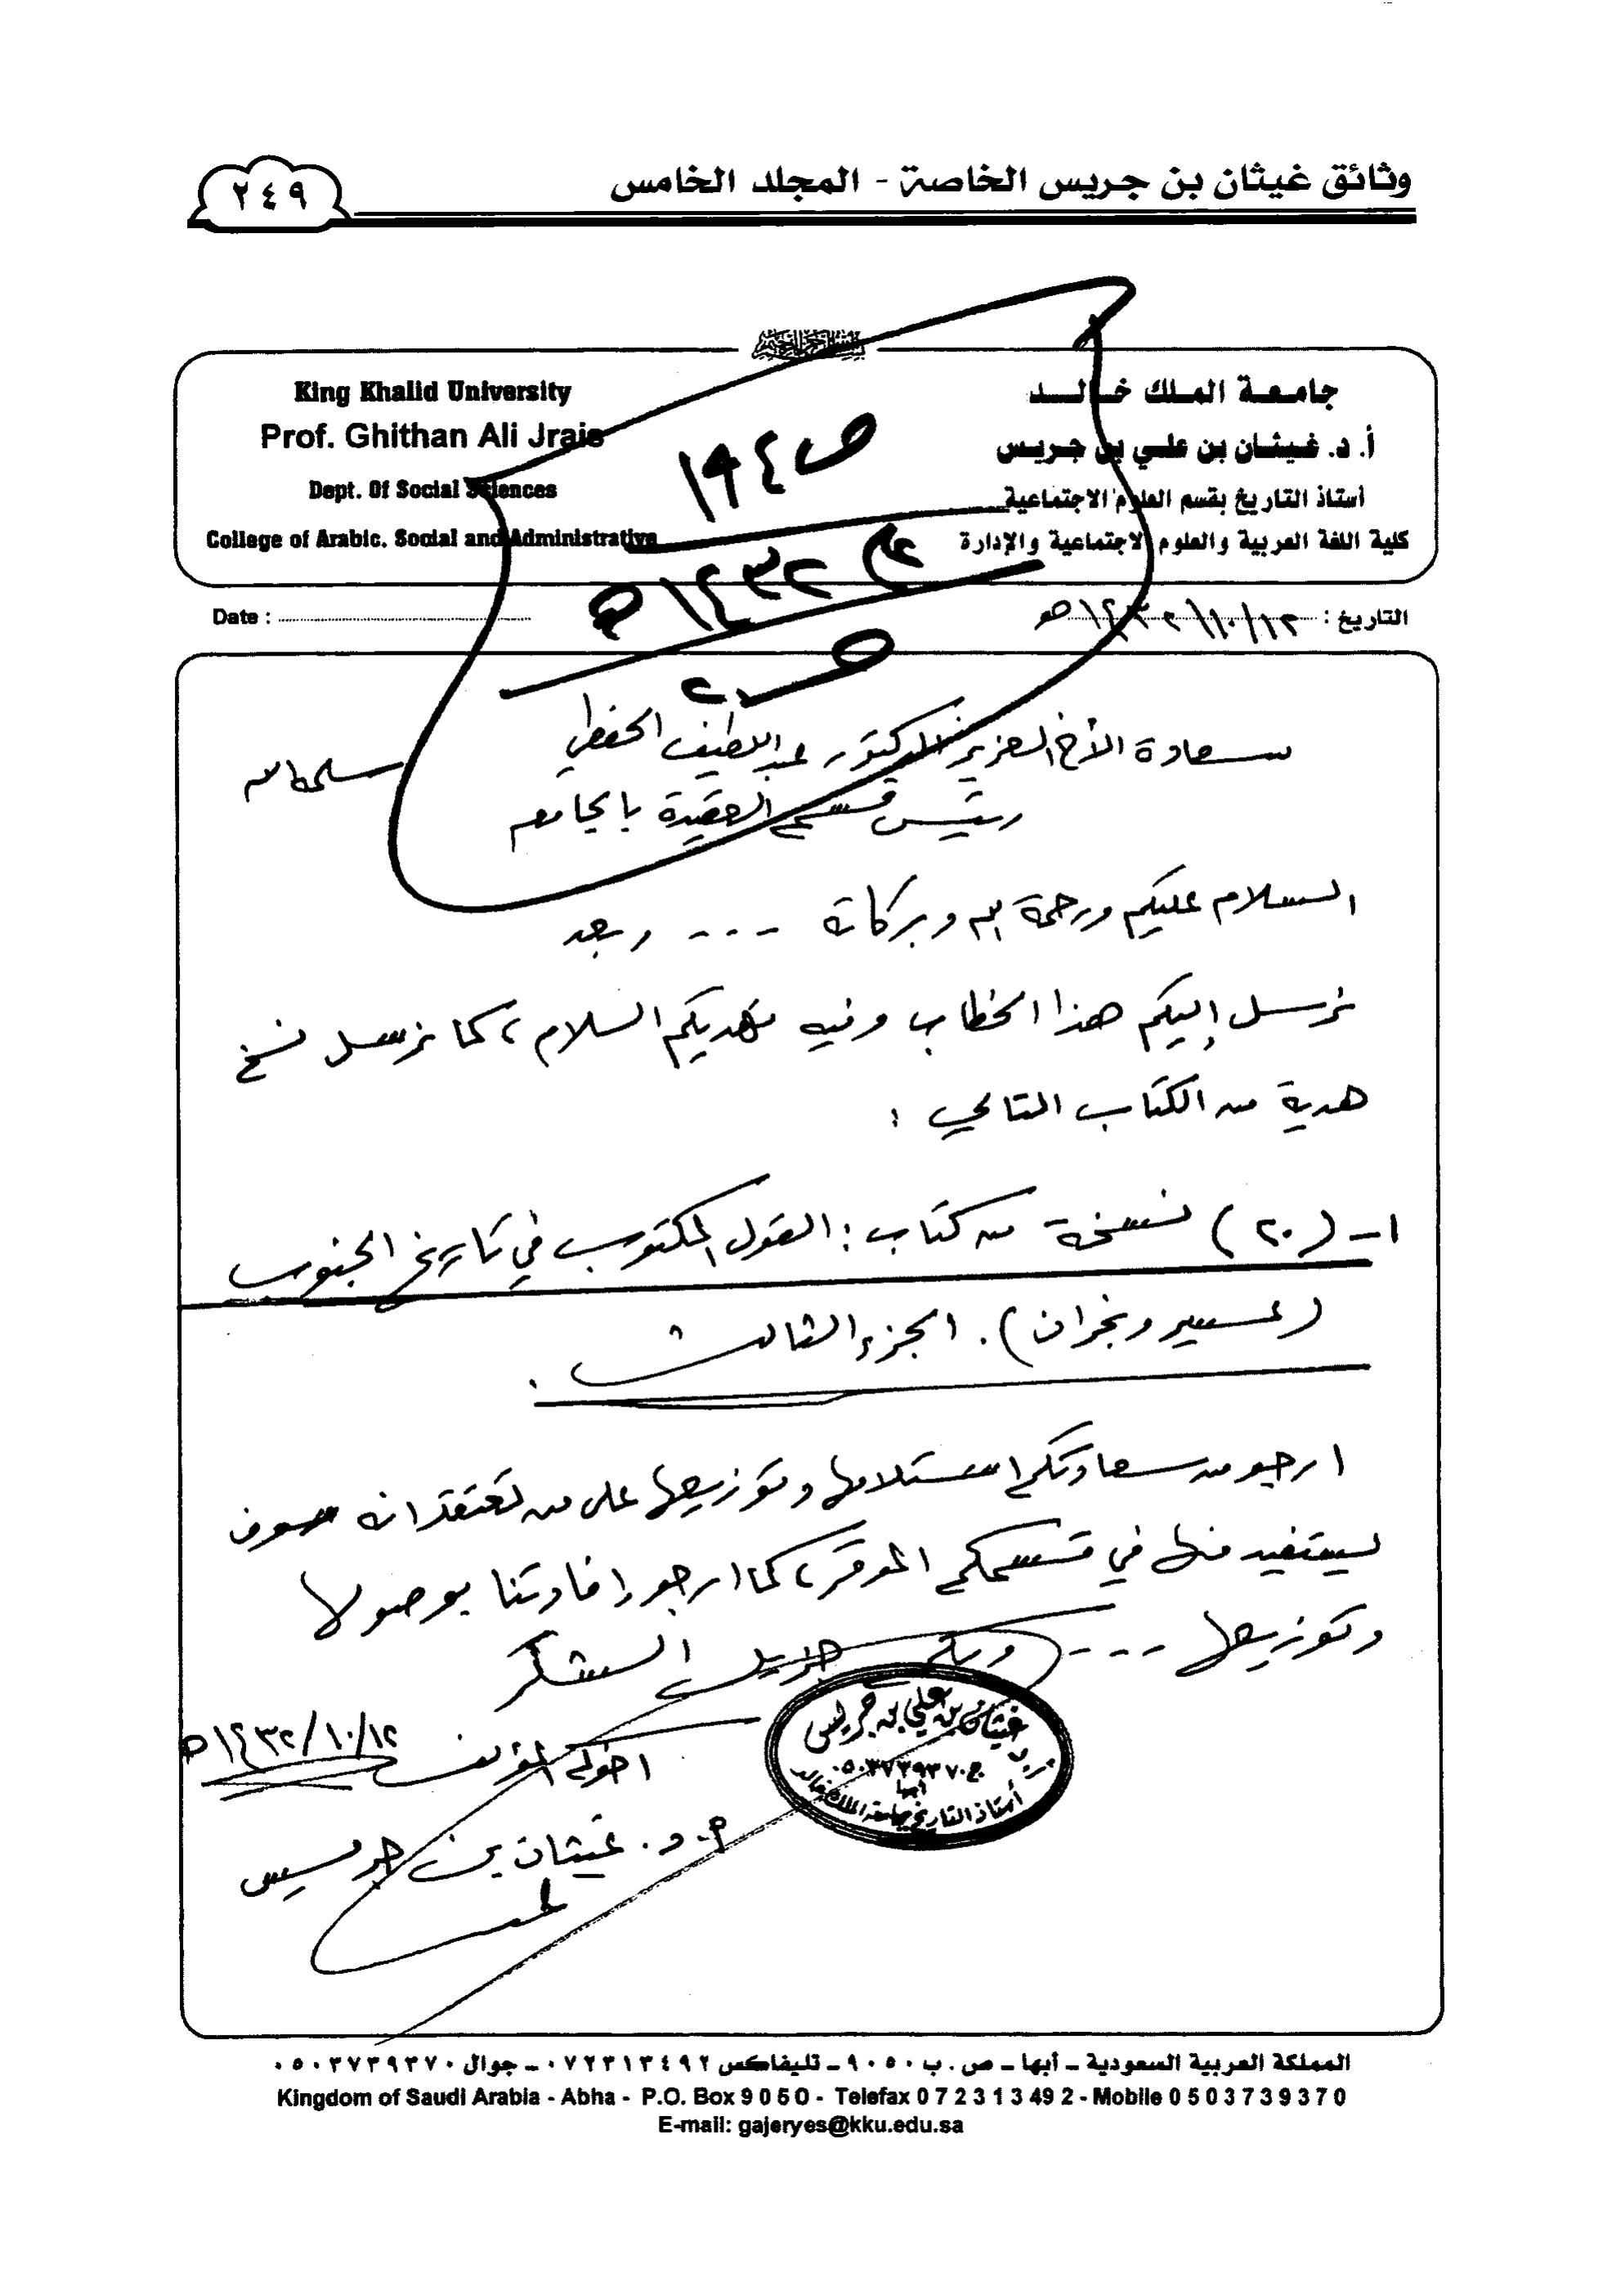 وثائق غيثان بن جريس الخاصة - المجلد الخامس
٢٤٩
جامعة الملك خالد
أ. د. غيثان بن علي بن جريس
أستاذ التاريخ بقسم العلوم الاجتماعية
كلية اللغة العربية والعلوم الاجتماعية والإدارة
King Khalid University
Prof. Ghithan Ali Jrais
Dept. Of Social Sciences
College of Arabic. Social and Administrative
التاريخ : ١٤٣٢/١٠/١٢هـ
Date :
ص ١٩٤
عام ١٤٣٢هـ
سعادة الأخ العزيز الدكتور عبداللطيف الحفظي سلمه الله
رئيس قسم العقيدة بالجامعة
السلام عليكم ورحمة الله وبركاته - - - وبعد
نرسل إليكم هذا الخطاب وفيه نهديكم السلام ، كما نرسل نسخ
هدية من الكتاب التالي :
١- (٢٠) نسخة من كتاب : القول المكتوب في تاريخ الجنوب
(عسير ونجران) . الجزء الثالث .
ارجو من سعادتكم استلامها وتوزيعها على من تعتقد انه سوف
يستفيد منها في قسمكم الموقر ، كما ارجو إفادتنا بوصولها
وتوزيعها - - - ولكم جزيل الشكر
اخوكم المؤلف ١٤٣٢/١٠/١٢هـ
أ. د. غيثان بن جريس
غيثان بن علي بن جريس
ج ٠٥٠٣٧٣٩٣٧٠
أبها
أستاذ التاريخ بجامعة الملك خالد
المملكة العربية السعودية ـ أبها ـ ص . ب ٩٠٥٠ ـ تليفاكس ٠٧٢٣١٣٤٩٢ ـ جوال ٠٥٠٣٧٣٩٣٧٠
Kingdom of Saudi Arabia - Abha - P.O. Box 9050 - Telefax 072313492 - Mobile 0503739370
E-mail: gajeryes@kku.edu.sa